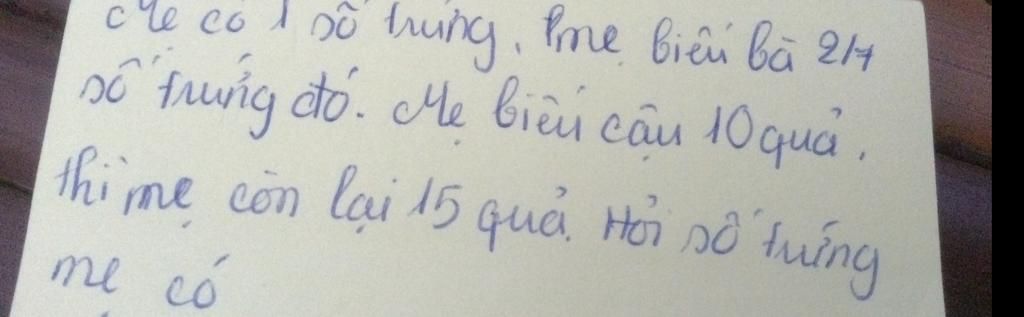 Mẹ có 1 số trứng, mẹ biếu bà 2/7
số trứng đó. Mẹ biếu cậu 10 quả.
thì mẹ còn lại 15 quả. Hỏi số trứng
mẹ có